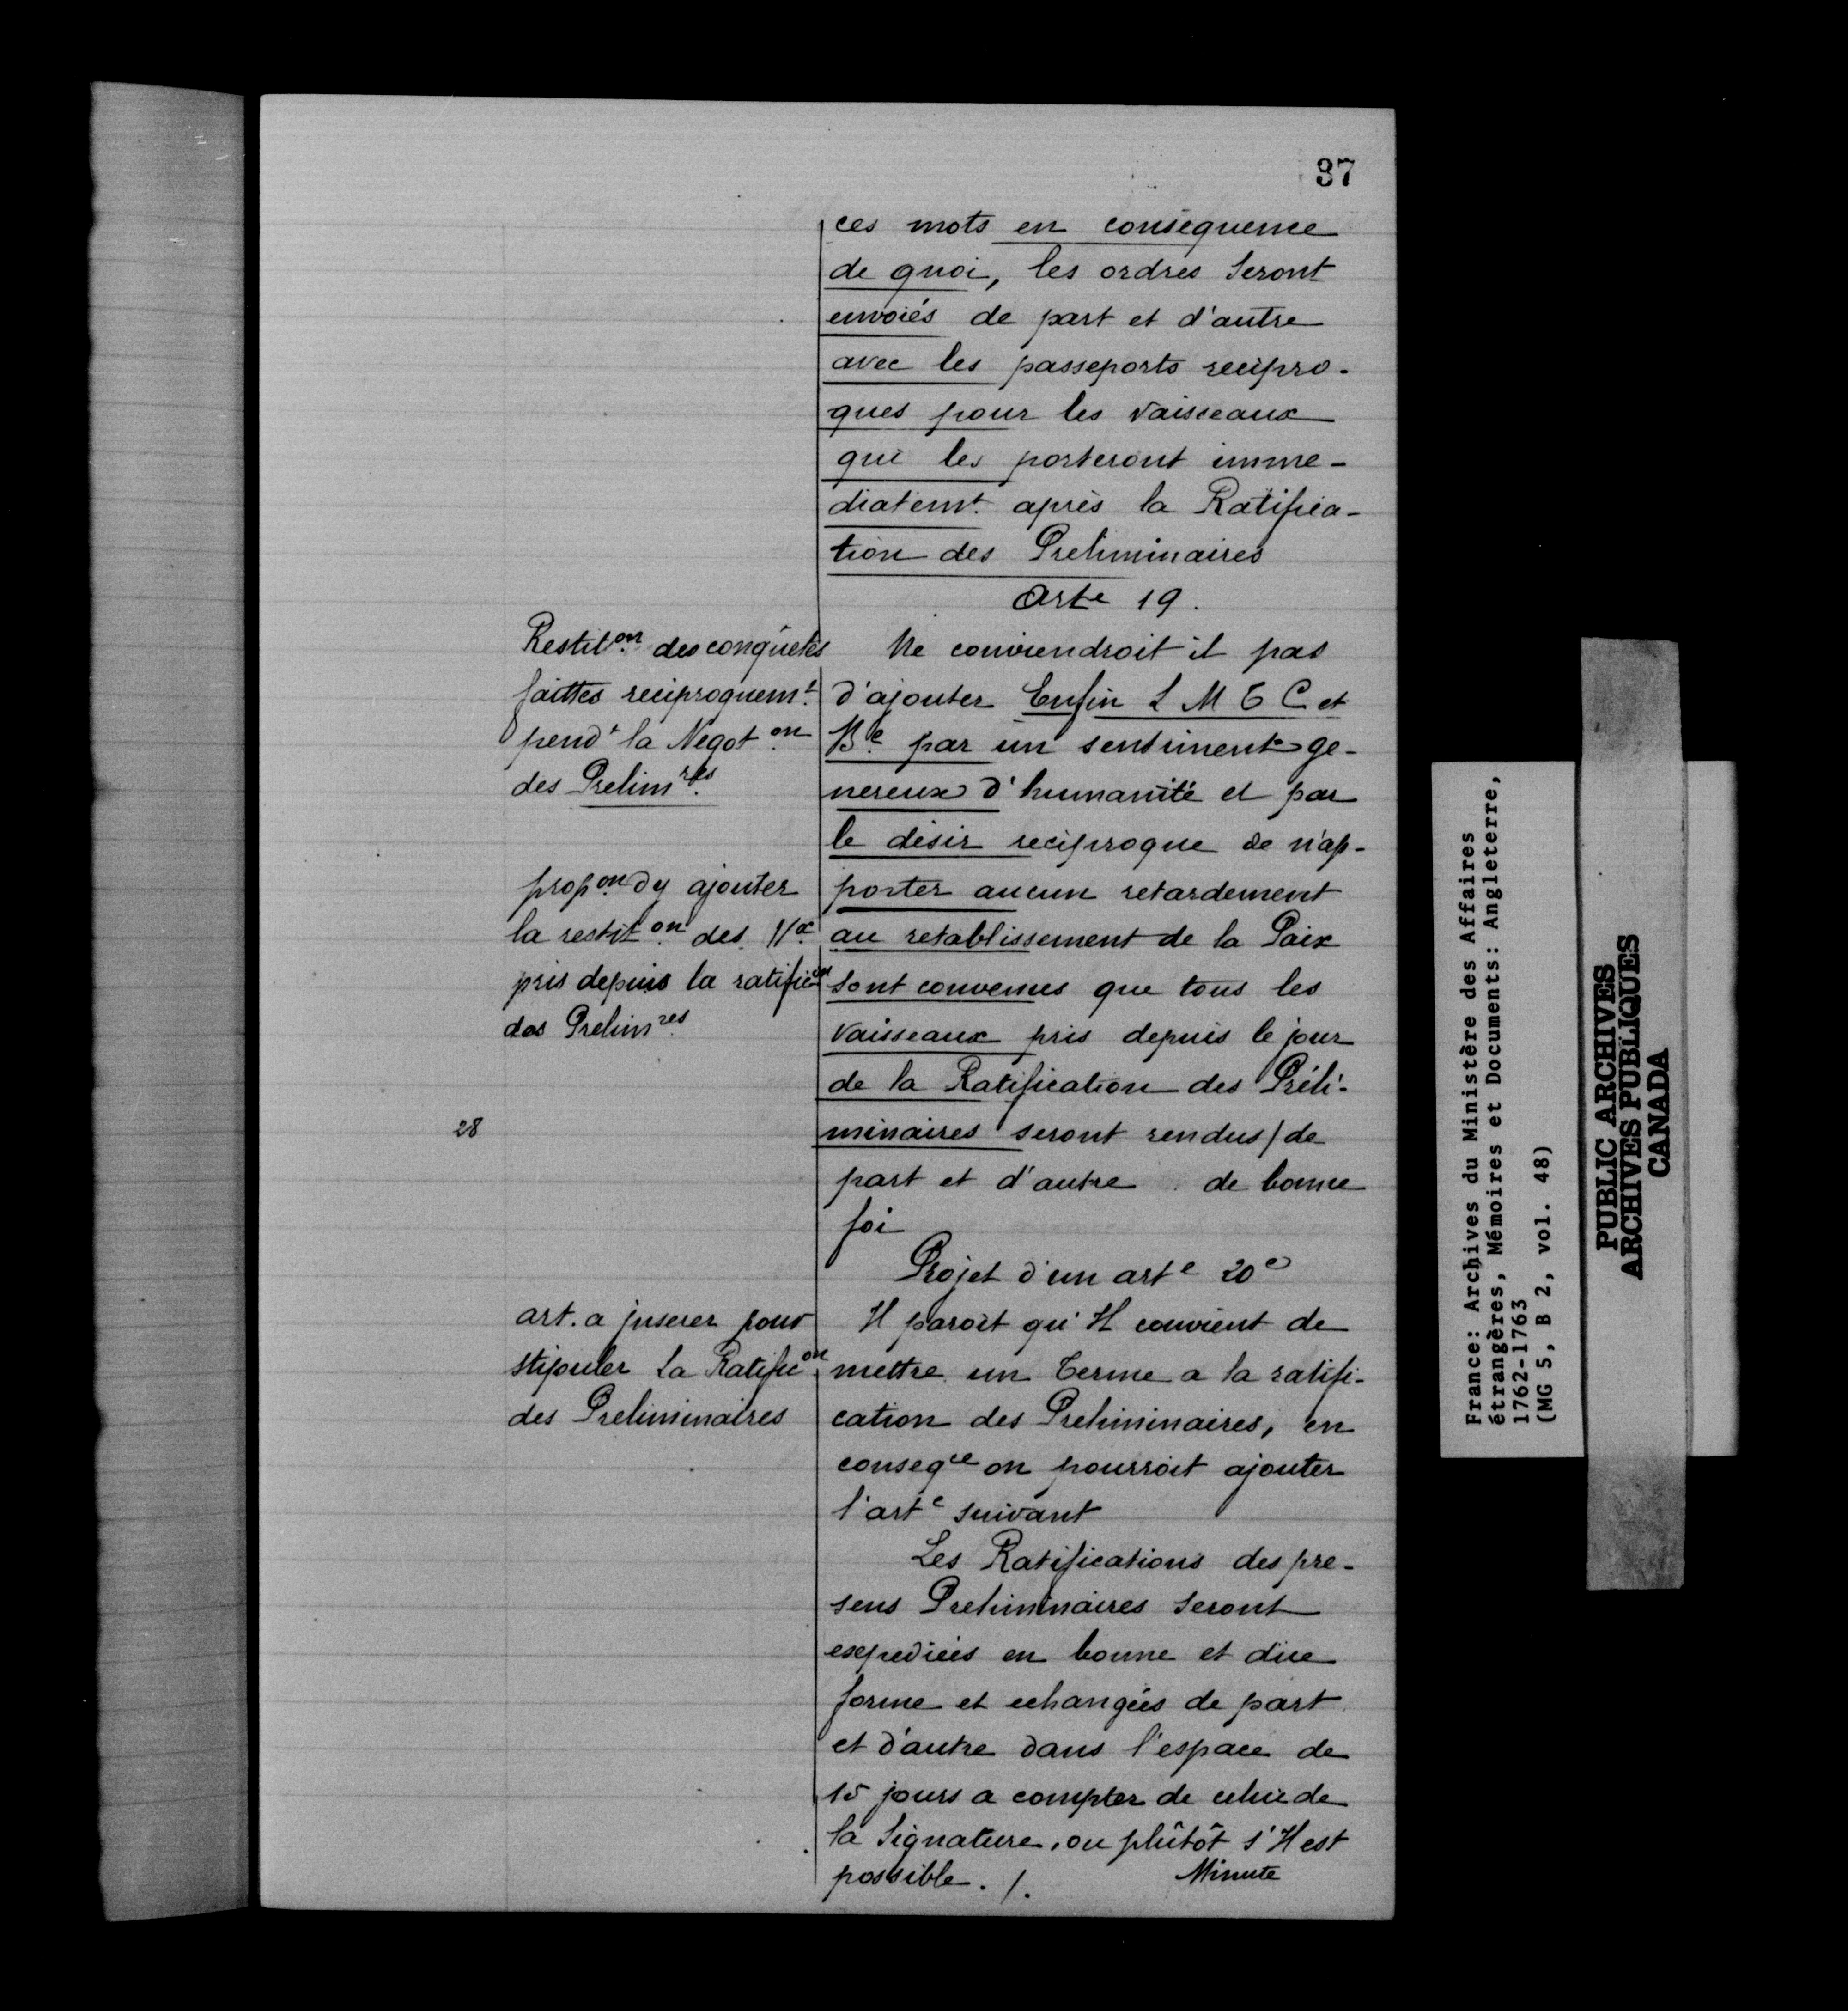 37
ces mots en consequence
de quoi, les ordres seront
envoiés de part et d'autre
avec les passeports recipro-
ques pour les vaisseaux
qui les porteront imme-
diatemt. après la Ratifica-
tion des Preliminaires
Arte 19.
Restiton. des conquêtes
faittes reciproquemt.
pendt la Negoton
des Prelimres.
Ne conviendroit il pas
d'ajouter Enfin L M T C et
Be par un sentiment ge-
nereux d'humanité et par
le désir reciproque de n'ap-
porter aucun retardement
au retablissement de la Paix
sont convenues que tous les
vaisseaux pris depuis le jour
de la Ratification des Préli-
minaires seront rendus/de
part et d'autre de bonne
foi
propon. dy ajouter
la restiton. des Vx.
pris depuis la ratificon
des Prelimres.
28
Projet d'un arte 20e
art. a jnserer pour
stipuler la Ratificon.
des Preliminaires
Il paroit qu'Il convient de
mettre un terme a la ratifi-
cation des Preliminaires, en
conseqce on pourroit ajouter
l'arte suivant
Les Ratifications des pre-
sens Preliminaires seront
expediées en bonne et düe
forme et echangées de part
et d'autre dans l'espace de
15 jours a compter de celui de
la signature, ou plûtôt s'Il est
possible. /.
Minute
France: Archives du Ministère des Affaires
étrangères, Mémoires et Documents: Angleterre,
1762-1763
(MG 5, B 2, vol. 48)
PUBLIC ARCHIVES
ARCHIVES PUBLIQUES
CANADA